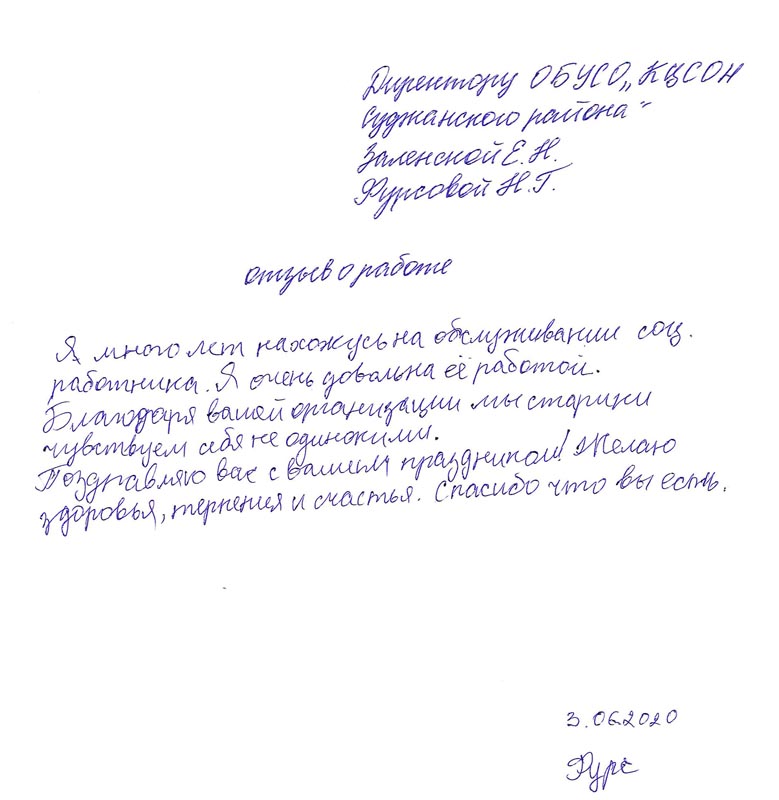 Директору ОБУСО „КЦСОН
Суджанского района"
Заленской Е. Н.
Фурсовой Н. Г.
отзыв о работе
Я много лет нахожусь на обслуживании соц.
работника. Я очень довольна её работой.
Благодаря вашей организации мы старики
чувствуем себя не одинокими.
Поздравляю вас с вашим праздником! Желаю
здоровья, терпения и счастья. Спасибо что вы есть.
3.06.2020
Фурс